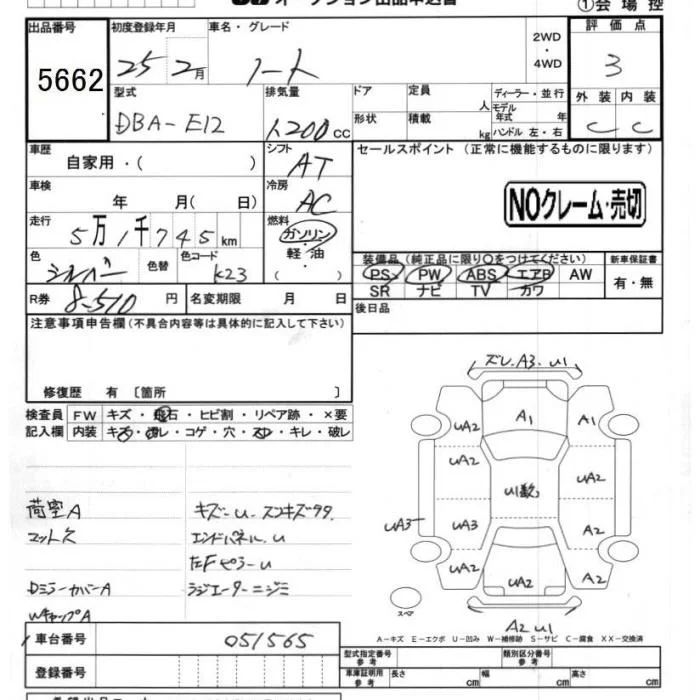 オークション出品申込書
①会場控
出品番号
5662
初度登録年月
25 2月
車名・グレード
ノート
2WD
・
4WD
評価点
3
型式
DBA-E12
排気量
1200cc
ドア
形状
定員 人
積載 kg
ディーラー・並行
モデル年式 年
ハンドル 左・右
外装
C
内装
C
車歴
自家用・( )
シフト
AT
セールスポイント (正常に機能するものに限ります)
NOクレーム・売切
車検
年 月( 日)
冷房
AC
走行
5万1千745km
燃料
ガソリン
・
軽油
( )
色
シルバー
色替
色コード
K23
装備品 (純正品に限り〇をつけてください)
PS PW ABS エアB AW
SR ナビ TV カワ
新車保証書
有・無
R券
8-510円
名変期限 月 日
後日品
注意事項申告欄(不具合内容等は具体的に記入して下さい)
修復歴 有 〔箇所 〕
検査員
記入欄
FW キズ・飛石・ヒビ割・リペア跡・×要
内装 キズ・汚レ・コゲ・穴・スレ・キレ・破レ
荷室A
マット欠
Dミラーカバー A
WキャップA
キズ-U-スリキズ99.
エンドパネル.U
左Fピラー U
ラジエーターニジミ
ズレ.A3.U1
A1
UA2
A1
UA2
UA2
U1数
UA3
UA3
A2
UA2
UA2
A2
スペア
A2 U1
A-キズ E-エクボ U-凹み W-補修跡 S-サビ C-腐食 XX-交換済
車台番号
051565
登録番号
型式指定番号
参考
類別区分番号
参考
車庫証明用
参考
長さ cm
幅 cm
高さ cm